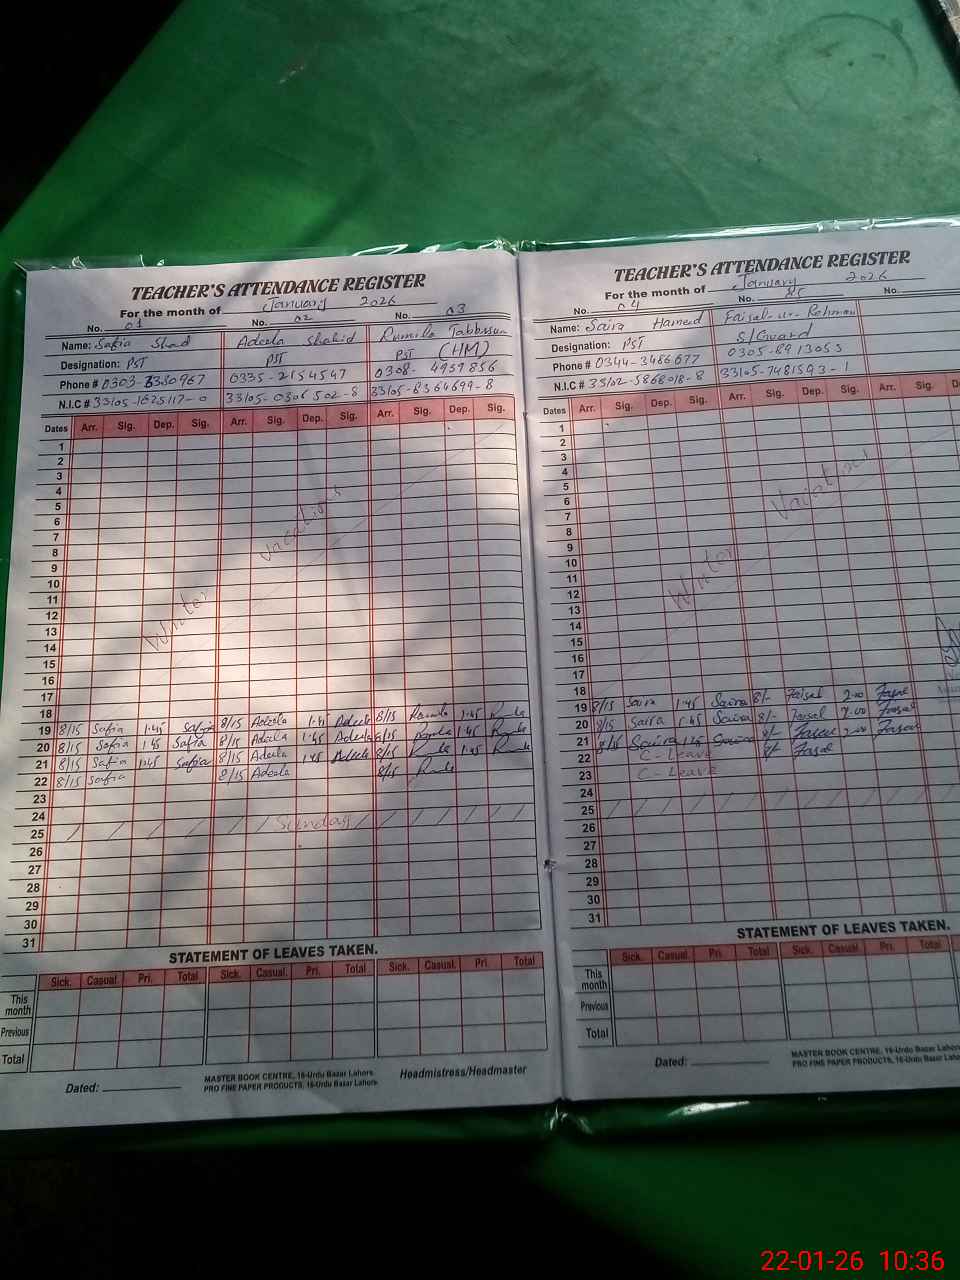 TEACHER'S ATTENDANCE REGISTER
For the month of January 2026
No. 01 No. 02 No. 03
Name: Safia Shad Adeela Shahid Rumila Tabbssum
Designation: PST PST PST (HM)
Phone # 0335-2154547 0308-4959856
N.I.C #
Dates Arr. Sig. Dep. Sig. Arr. Sig. Dep. Sig. Arr. Sig. Dep. Sig.
1
2
3
4
5
6
7
8
9
10
11
12
13
14
15
16
17
Winter vacations
18
19 8/15 Safia 1:45 Safia 8/15 Adeela 1:45 Adeela 8/15 Rumila 1:45
20 8/15 Safia 1:45 Safia 8/15 Adeela 1:45 Adeela 8/15 1:45
21 8/15 Safia 1:45 Safia 8/15 Adeela 1:45 Adeela 8/15 1:45
22 8/15 Safia 8/15 Adeela 8/15
23
24
25 Sunday
26
27
28
29
30
31
STATEMENT OF LEAVES TAKEN.
Sick. Casual. Pri. Total Sick. Casual. Pri. Total Sick. Casual. Pri. Total
This month
Previous
Total
Dated:
MASTER BOOK CENTRE, 16-Urdu Bazar Lahore.
PRO FINE PAPER PRODUCTS, 16-Urdu Bazar Lahore.
Headmistress/Headmaster
TEACHER'S ATTENDANCE REGISTER
For the month of January 2026
No. 04 No. 05 No.
Name: Saira Hameed Faisal-ur-Rehman
Designation: PST S/Guard
Phone # 0344-3486677 0305-8913053
N.I.C #
Dates Arr. Sig. Dep. Sig. Arr. Sig. Dep. Sig. Arr. Sig.
1
2
3
4
5
6
7
8
9
10
11
12
13
14
15
16
17
Winter Vacations
18
19 8/15 Saira 1:45 Saira 8/- Faisal 2:00 Faisal
20 8/15 Saira 1:45 Saira 8/- Faisal 2:00 Faisal
21 8/15 Saira 1:45 Saira 8/- Faisal 2:00 Faisal
22 C-Leave 8/- Faisal
23 C-Leave
24
25
26
27
28
29
30
31
STATEMENT OF LEAVES TAKEN.
Sick. Casual. Pri. Total Sick. Casual. Pri. Total
This month
Previous
Total
Dated:
MASTER BOOK CENTRE, 16-Urdu Bazar Lahore
PRO FINE PAPER PRODUCTS, 16-Urdu Bazar
22-01-26 10:36